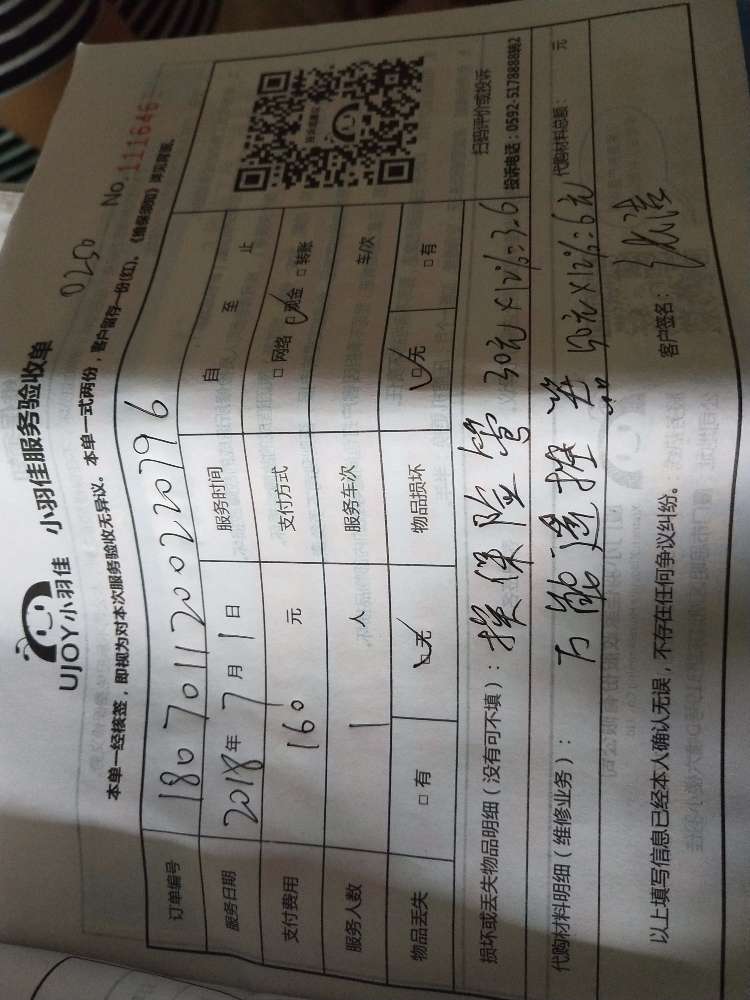 UJOY小羽佳 小羽佳服务验收单
0250
No.111646
本单一经核签，即视为对本次服务验收无异议。本单一式两份，客户留存一份(红)，《维保须知》详见背面。
订单编号 180701120022079 6
服务日期 2018年7月1日 服务时间 自 至 止
支付费用 160 元 支付方式 □网络 □现金 □转账
服务人数 1 人 服务车次 车/次
物品丢失 □有 □无 物品损坏 □无 □有
扫码评价或投诉
投诉电话：0592-5178888转2
损坏或丢失物品明细（没有可不填）：换保险管 30元×12%=3.6
代购材料明细（维修业务）：万能遥控器 50元×12%=6元 代购材料总额： 元
以上填写信息已经本人确认无误，不存在任何争议纠纷。 客户签名：